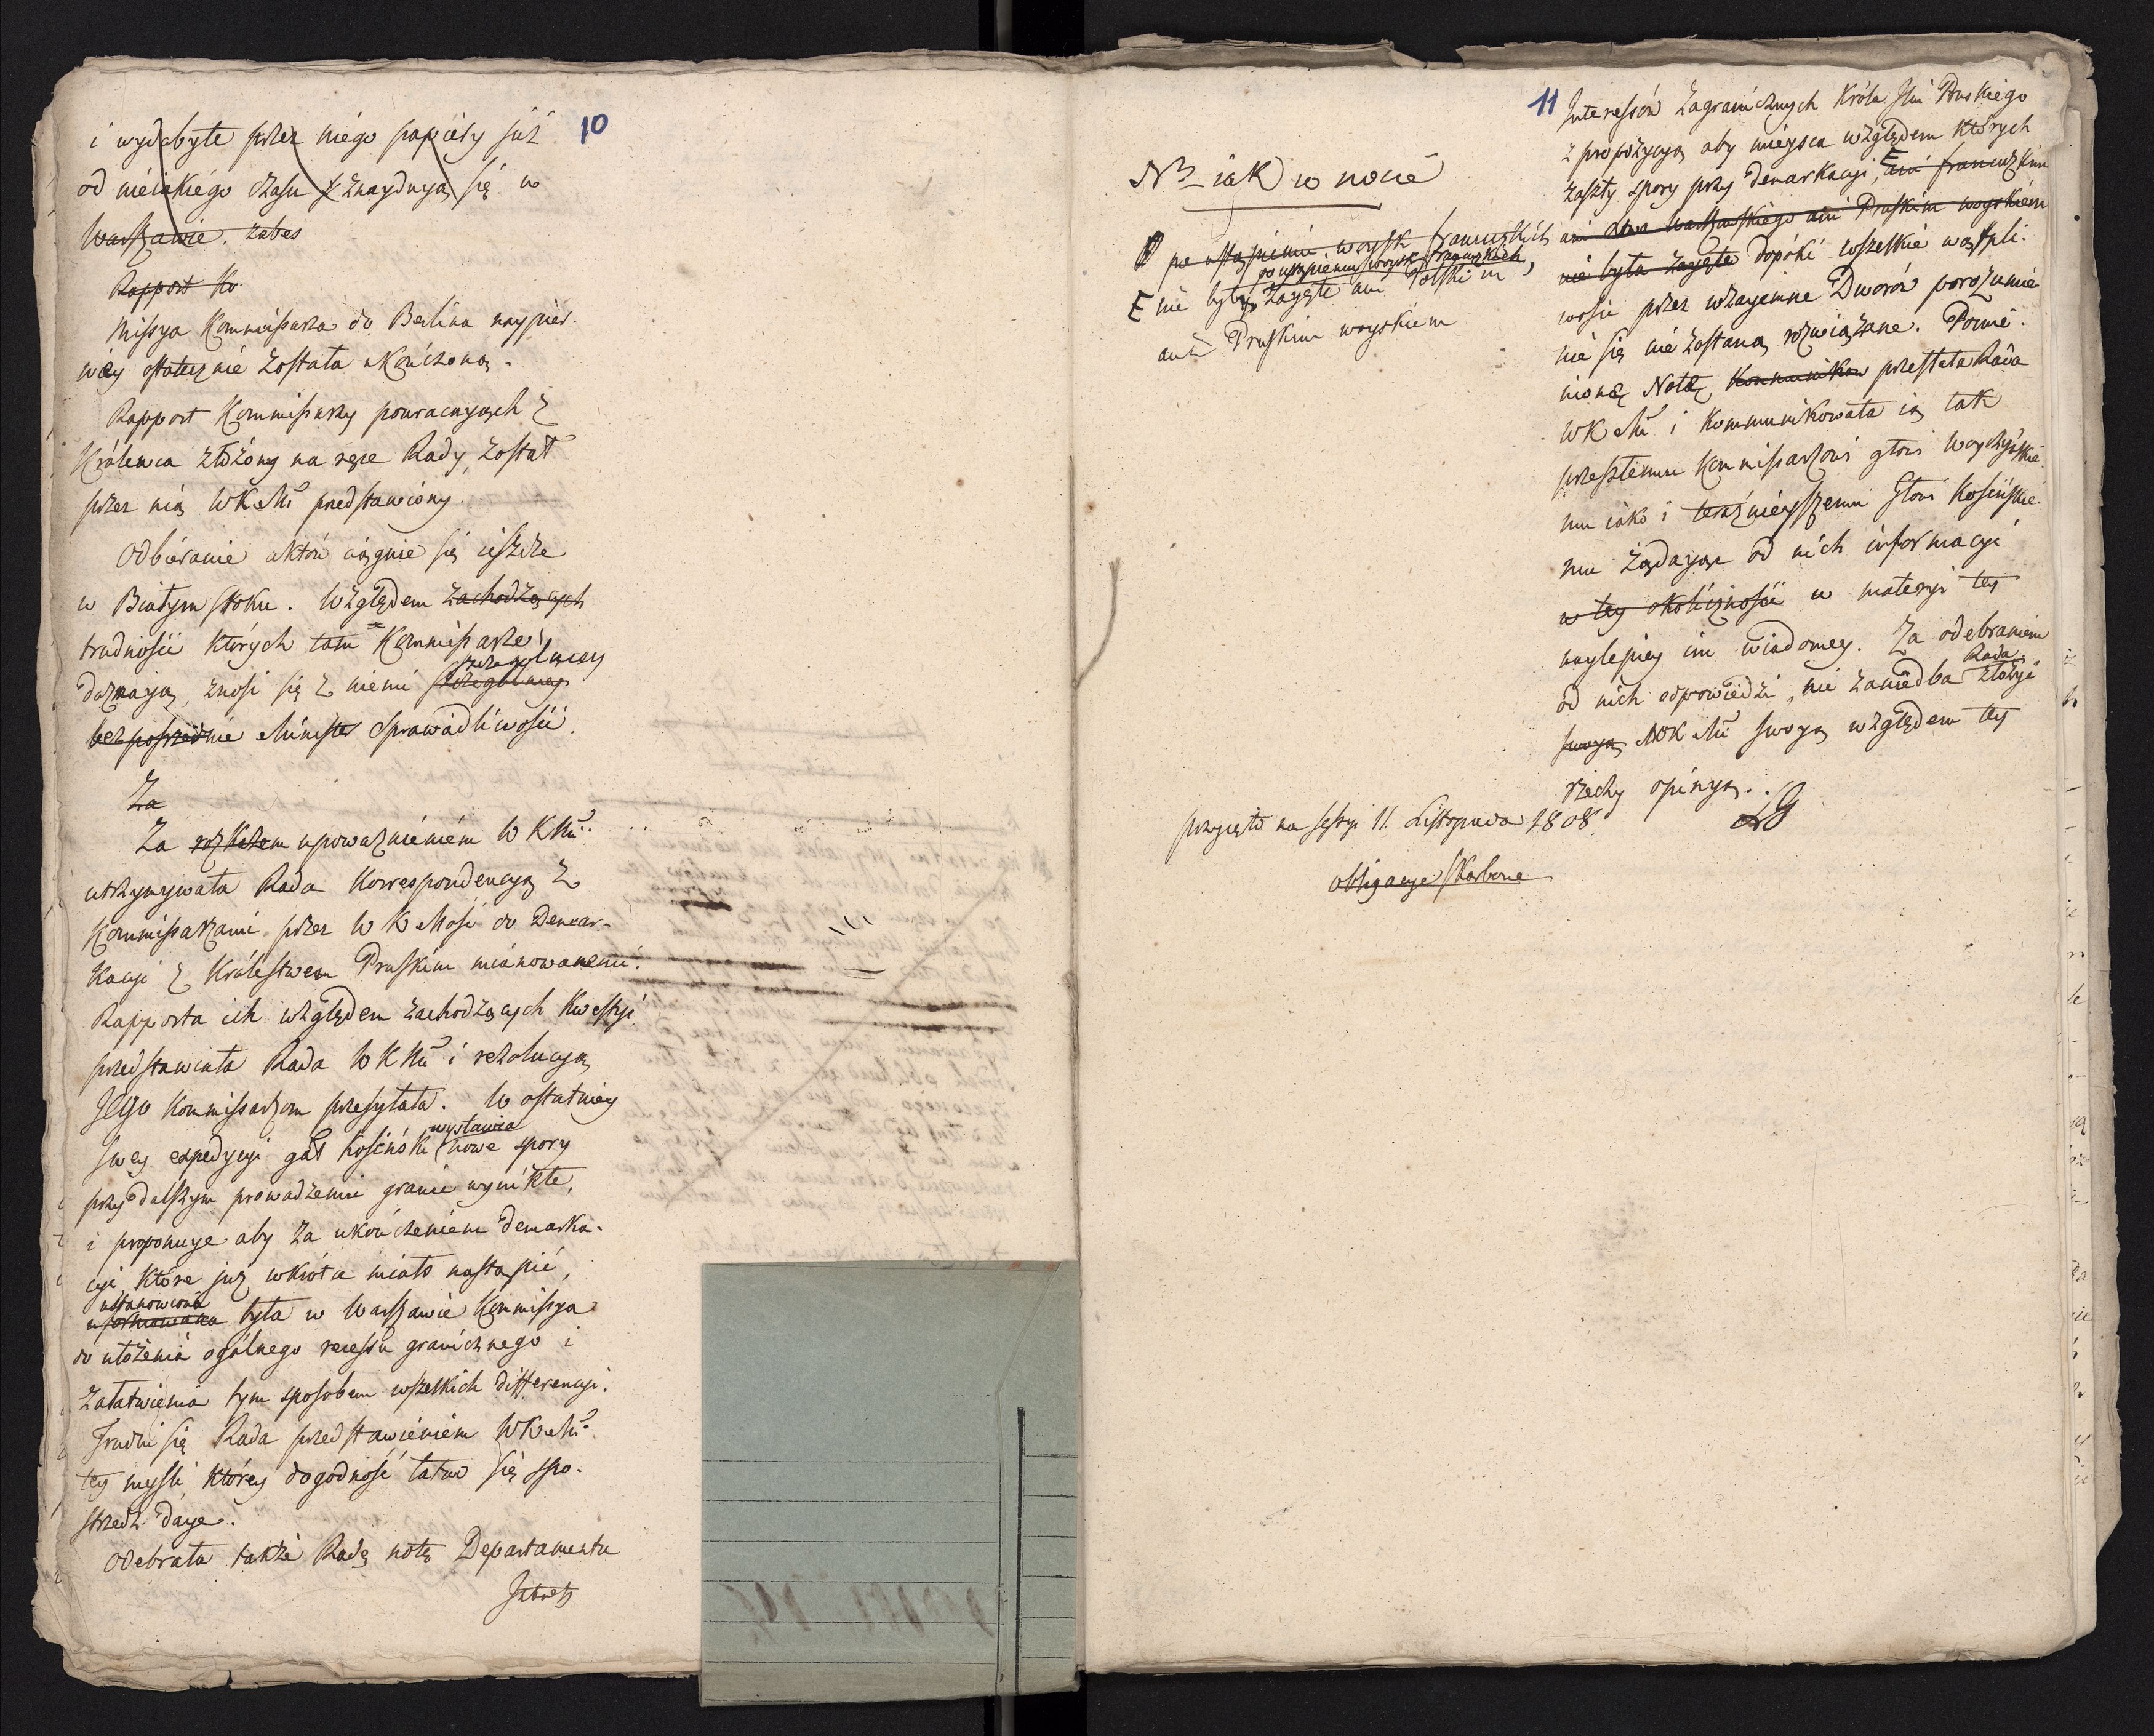 10
i wydobyte przez niego papiery już
od niejakiego czasu znayduyą się w
Warszawie. zabes
Rapport Ko
Missya Kommissarza do Berlina naypier-
wey ostatecznie została ukończoną.
Rapport Kommissarzy powracaiących z
Królewca złożony na ręce Rady, został
przez nią WKMci przedstawiony.
Odbieranie aktów ciągnie się ieszcze
w Białymstoku. Względem zachodzących
trudności których tam Kommissarze
szczegulniey
doznaią, znosi się z niemi szczegulniey
bezpośrednie Minister Sprawiedliwości.
Za
Za rozkazem upoważnieniem WKMci
utrzymywała Rada Korrespondencyą z
Kommissarzami przez WKMość do Demar-
kacyi z Królestwem Pruskim mianowanemi.
Rapporta ich względem zachodzących kwestyi
przedstawiała Rada WKMci i rezolucyą
Jego Kommissarzom przesyłała. W ostatniey
wystawia
swey expedycyi gał Kosiński nowe spory
przy dalszym prowadzeniu granic wynikłe,
i proponuye aby za ukończeniem demarka-
cyi które już wkrótce miało nastąpić,
ustanowiona
uformowana była w Warszawie Kommissya
do ułożenia ogólnego recessu granicznego i
załatwienia tym sposobem wszelkich differencyi.
Trudni się Rada przedstawieniem WKMci
tey myśli, którey dogodność łatwo się spo-
strzedz daye.
Odebrała także Rada notę Departamentu
11
Interessów Zagranicznych Króla Jmci Pruskiego
z propozycyą aby mieysca względem których
zaszły spory przy demarkacyi, ani francuzkim
ani Xtwa Warszawskiego ani Pruskim woyskiem
nie były zayęte dopóki wszelkie wątpli-
wości przez wzayemne Dworów porozumie
nie się nie zostaną rozwiązane. Pomie-
nioną Notę kommunikow przesłała Rada
WKMci i kommunikowała ią tak
przeszłemu Kommissarzowi głowi Woyczyńskie-
mu iako i teraźnieyszemu głowi Kosińskie-
mu żądaiąc od nich informacyi
w tey okoliczności w materyi tey
naylepiey im wiadomey. Za odebraniem
Rada
od nich odpowiedzi, nie zaniedba złożyć
swoyą WKMci swoyą względem tey
rzeczy opinyą.
N3 iak w nocie
po ustąpieniu woysk francuzkich
po ustąpieniu woysk francuzkich,
nie były zayęte ani Polskim
ani Pruskim woyskiem
przyięto na sessyi 11. Listopada 1808.
Obligacye Skarbowe